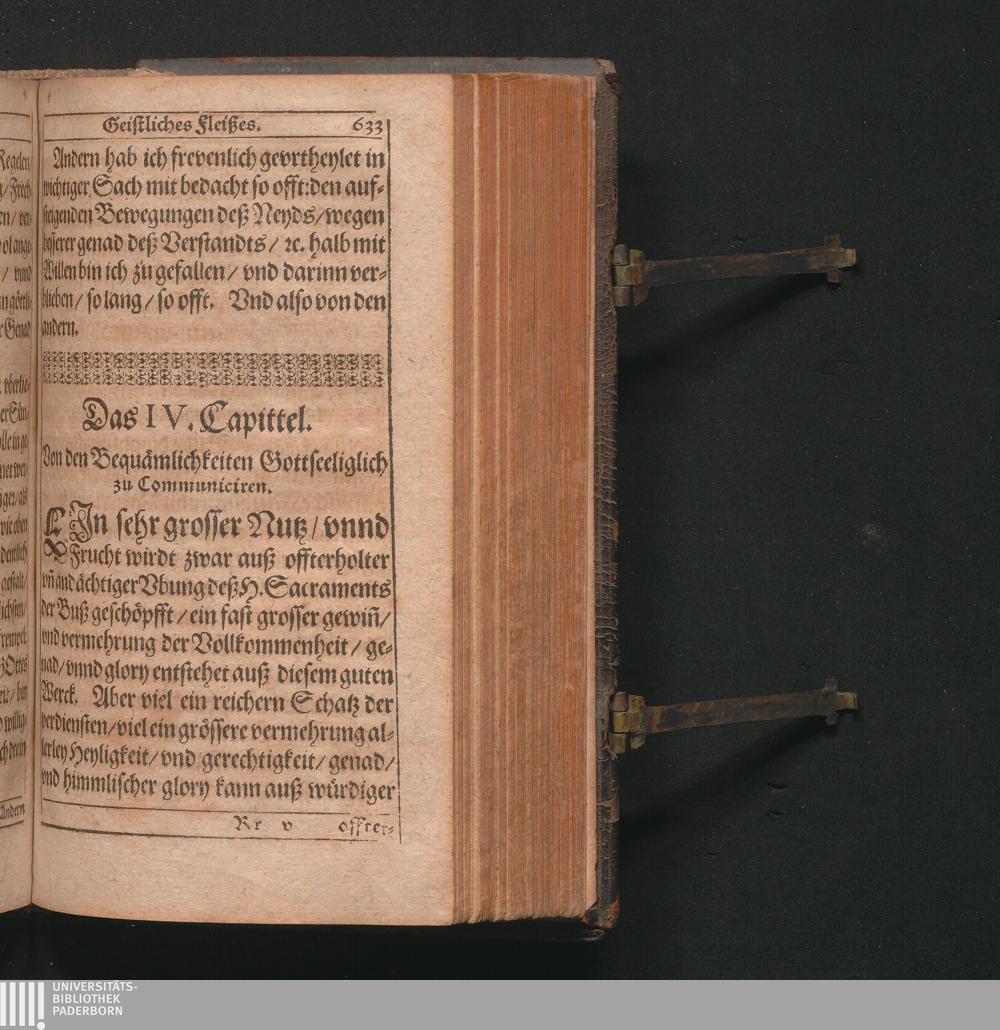 Geistliches Fleißes. 633
Andern hab ich frevenlich gevrtheylet in
wichtiger Sach mit bedacht so offt: den auf-
steigenden Bewegungen deß Neyds / wegen
besserer genad deß Verstandts / ꝛc. halb mit
Willen bin ich zu gefallen / vnd darinn ver-
blieben / so lang / so offt. Vnd also von den
andern.
Das IV. Capittel.
Von den Bequämlichkeiten Gottseeliglich
zu Communiciren.
EIn sehr grosser Nutz / vnnd
Frucht wirdt zwar auß offterholter
vn̄ andächtiger Vbung deß H. Sacraments
der Buß geschöpfft / ein fast grosser gewin̄ /
vnd vermehrung der Vollkommenheit / ge-
nad / vnnd glory entstehet auß diesem guten
Werck. Aber viel ein reichern Schatz der
verdiensten / viel ein grössere vermehrung al-
lerley Heyligkeit / vnd gerechtigkeit / genad /
vnd himmlischer glory kann auß würdiger
Rr v offter-
UNIVERSITÄTS-
BIBLIOTHEK
PADERBORN